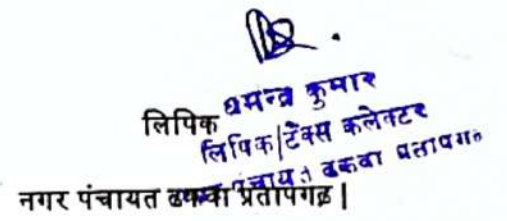 धर्मेन्द्र कुमार
लिपिक
लिपिक/टैक्स कलेक्टर
नगर पंचायत ढकवा प्रतापगढ़
नगर पंचायत ढकवा प्रतापगढ़ |